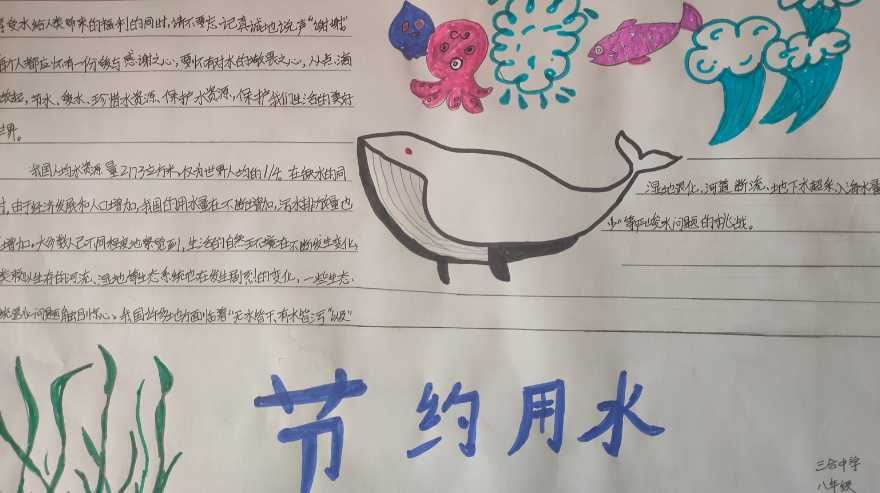 享受水给人类带来的福利的同时,请不要忘记真诚地说声"谢谢"
每个人都应怀有一份参与感谢之心,要怀有对水的敬畏之心,从点滴
做起,节水、爱水、珍惜水资源、保护水资源,保护我们生活的美好
世界。
我国人均水资源量2173立方米,仅为世界人均的1/4。在缺水的同
时,由于经济发展和人口增加,我国的用水量在不断增加,污水排放量也
增加。大多数人已不同程度地察觉到,生活的自然环境在不断发生变化,
类赖以生存的河流、湿地等生态系统也在发生剧烈的变化,一些生态
统退化问题触目惊心。我国许多地方面临着"无水皆干、有水皆污"以及"
湿地退化、河道断流、地下水超采、入海水量
少"等严峻水问题的挑战。
节约用水
三合中学
八年级